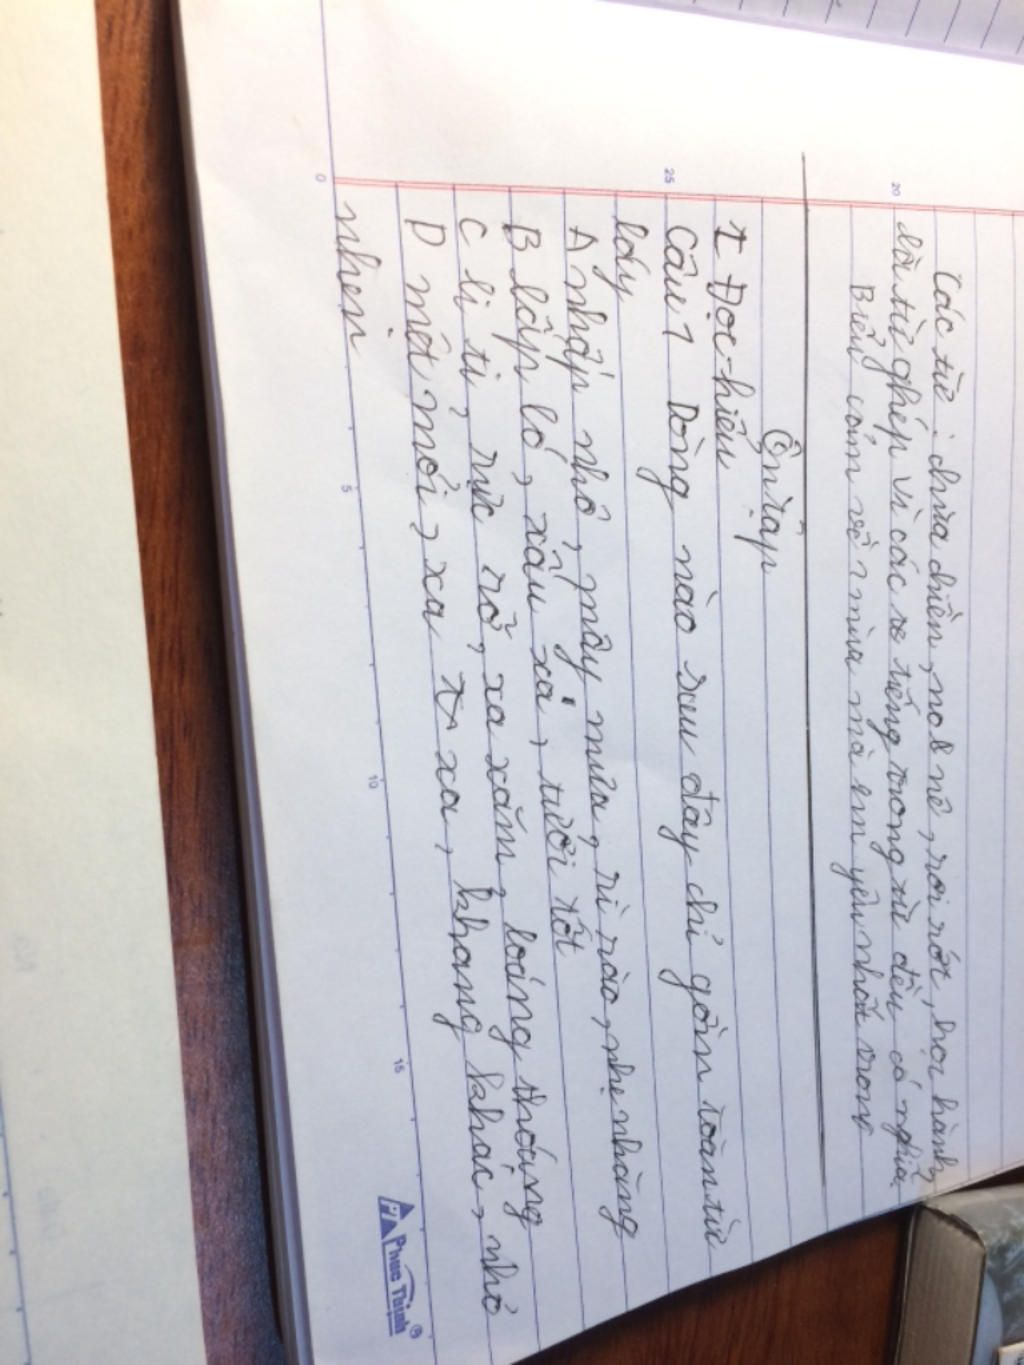 Các từ: chùa chiền, no nê, rơi rớt, học hành
là từ ghép vì các tiếng trong từ đều có nghĩa
Biểu cảm về 1 mùa mà em yêu nhất trong
Ôn tập
I Đọc-hiểu
Câu 1 Dòng nào sau đây chỉ gồm toàn từ
láy
A nhấp nhô, mây mưa, rì rào, nhẹ nhàng
B lấp ló, xấu xa, tươi tốt
C li ti, rực rỡ, xa xăm, loáng thoáng
D mệt mỏi, xa xa, khang khác, nhỏ
nhẹn
20
25
0
5
10
15
Phuc Thinh®